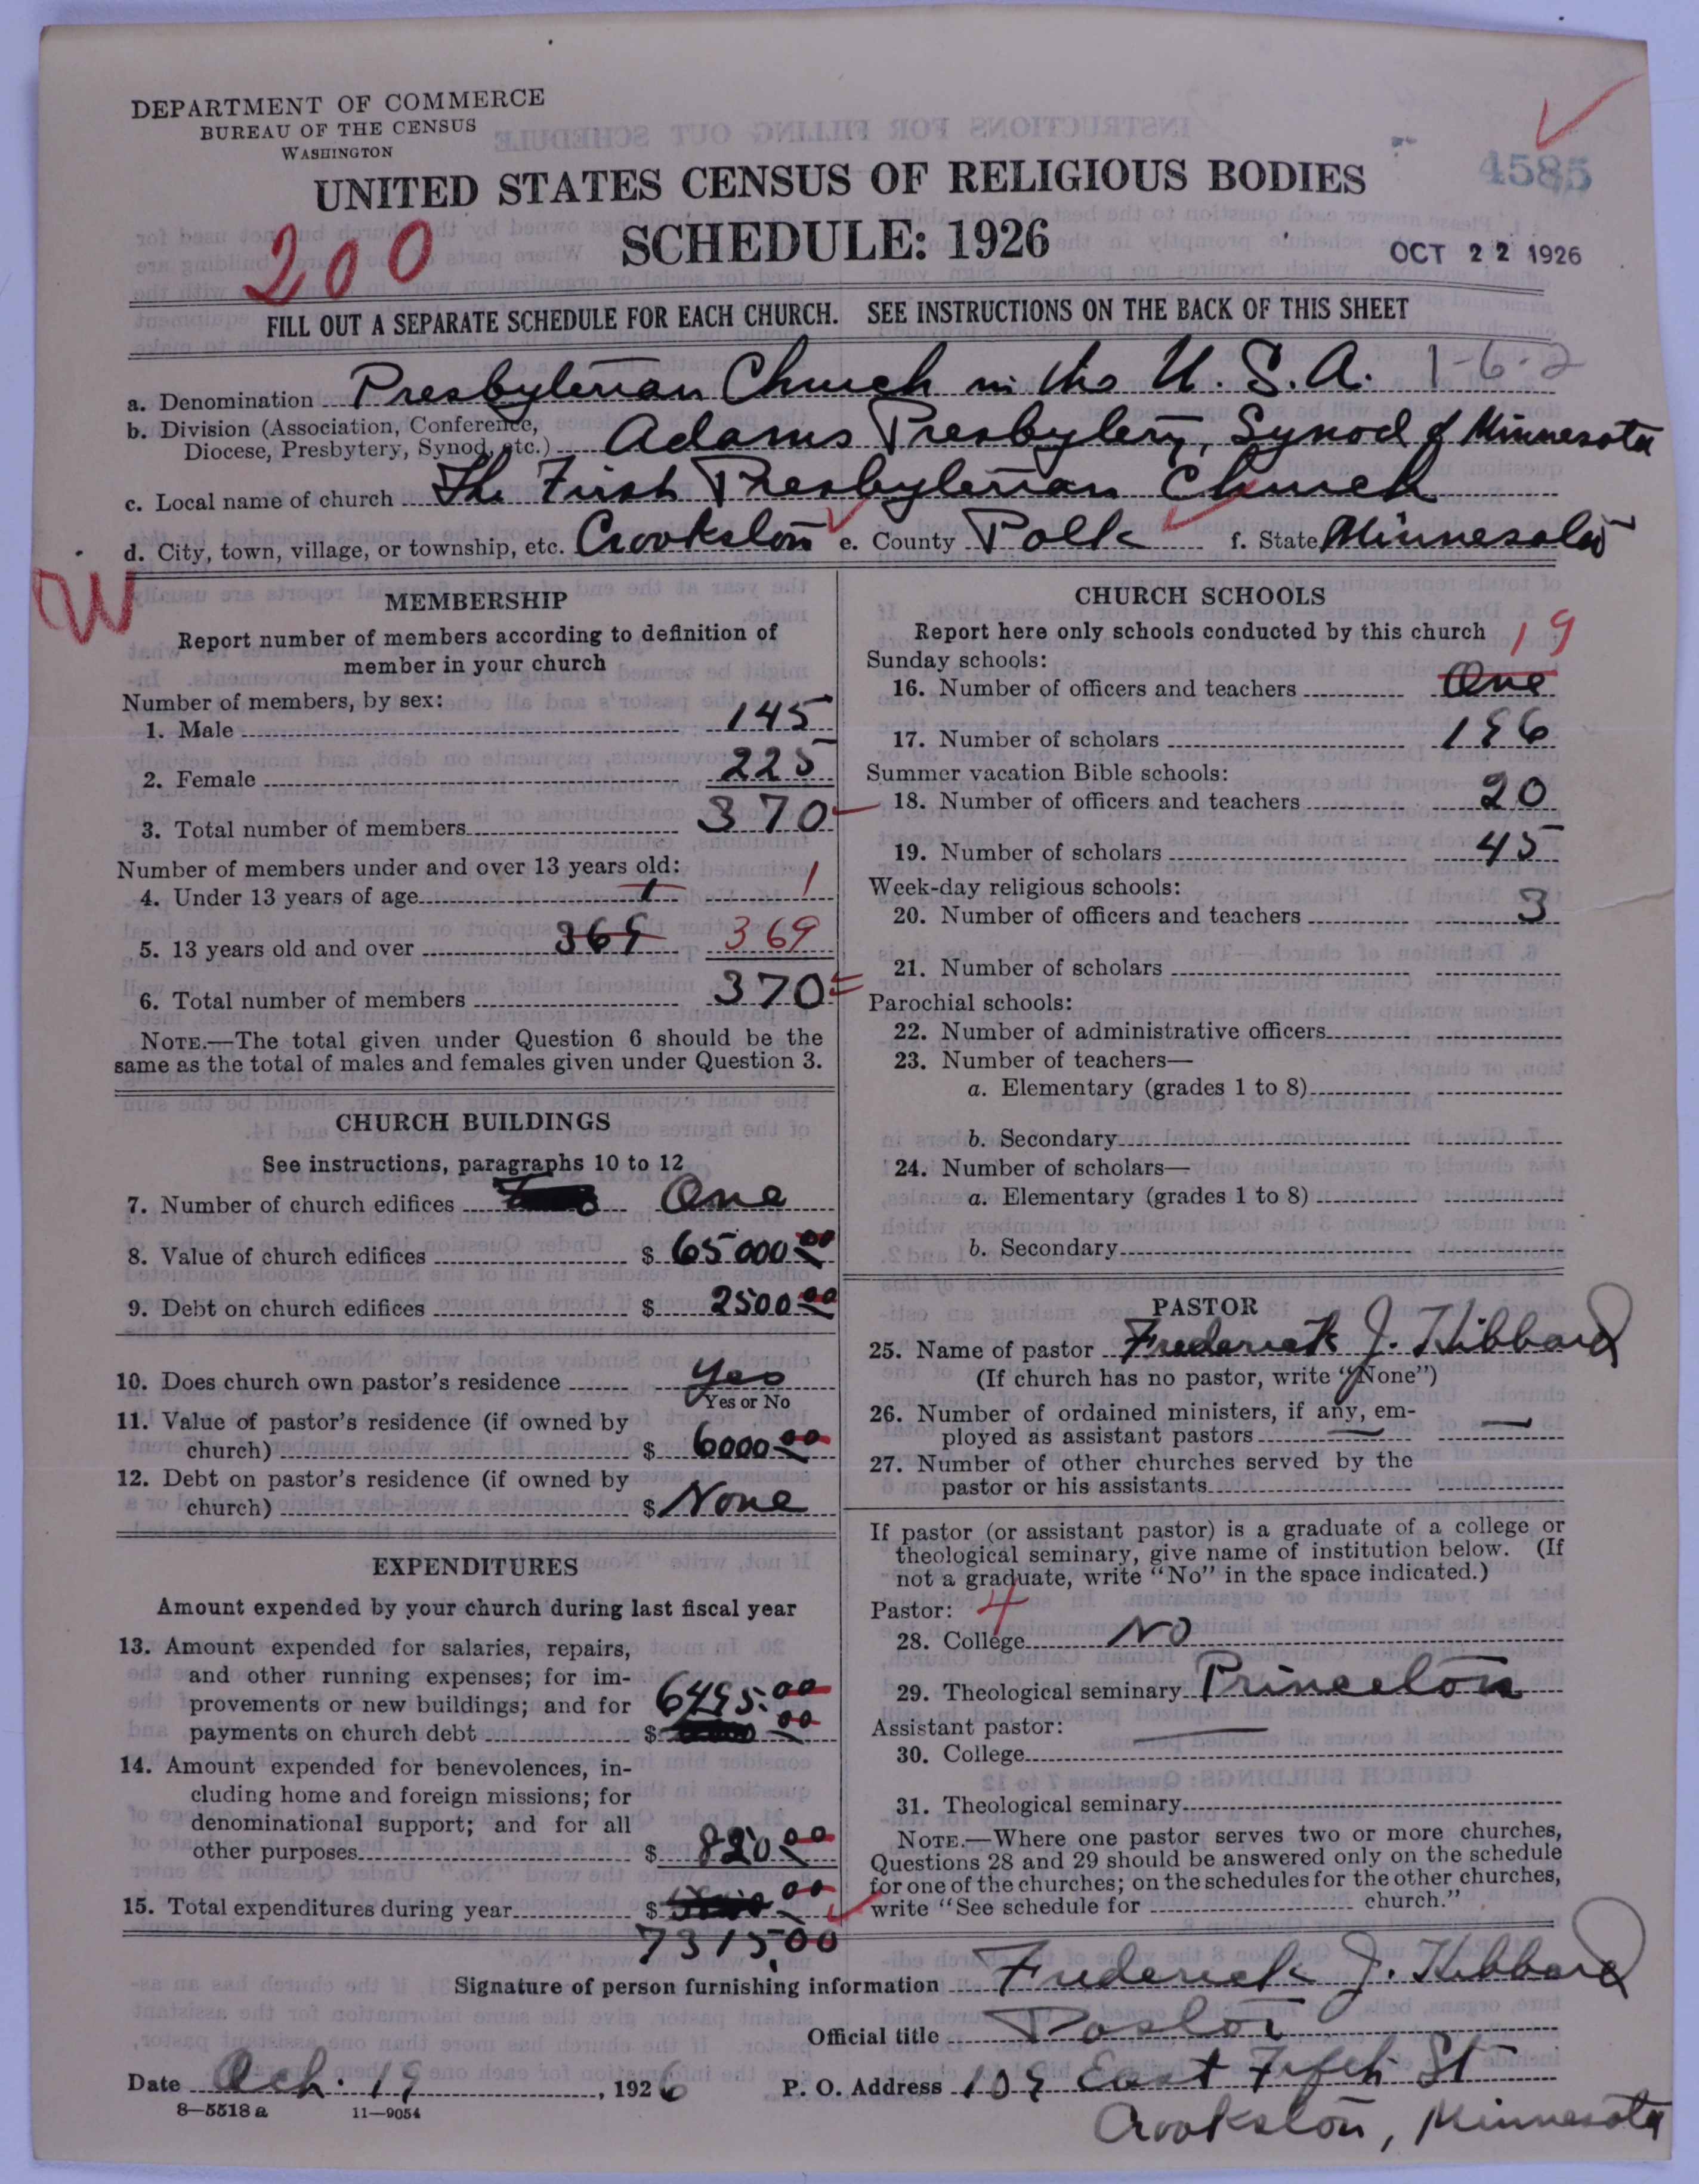 DEPARTMENT OF COMMERCE
BUREAU OF THE CENSUS
WASHINGTON
4585
UNITED STATES CENSUS OF RELIGIOUS BODIES
200
SCHEDULE: 1926
OCT 22 1926
FILL OUT A SEPARATE SCHEDULE FOR EACH CHURCH. SEE INSTRUCTIONS ON THE BACK OF THIS SHEET
a. Denomination Presbyterian Church in the U.S.A. 1-6-2
b. Division (Association, Conference,
Diocese, Presbytery, Synod, etc.) Adams Presbytery, Synod of Minnesota
c. Local name of church The First Presbyterian Church
d. City, town, village, or township, etc. Crookston e. County Polk f. State Minnesota
W
MEMBERSHIP
Report number of members according to definition of
member in your church
Number of members, by sex:
1. Male 145
2. Female 225
3. Total number of members 370
Number of members under and over 13 years old:
4. Under 13 years of age 1 1
5. 13 years old and over 369 369
6. Total number of members 370
NOTE.—The total given under Question 6 should be the
same as the total of males and females given under Question 3.
CHURCH BUILDINGS
See instructions, paragraphs 10 to 12
7. Number of church edifices One
8. Value of church edifices $ 65000.00
9. Debt on church edifices $ 2500.00
10. Does church own pastor's residence Yes
Yes or No
11. Value of pastor's residence (if owned by
church) $ 6000.00
12. Debt on pastor's residence (if owned by
church) $ None
EXPENDITURES
Amount expended by your church during last fiscal year
13. Amount expended for salaries, repairs,
and other running expenses; for im-
provements or new buildings; and for 6495.00
payments on church debt $ 00
14. Amount expended for benevolences, in-
cluding home and foreign missions; for
denominational support; and for all
other purposes $ 820.00
15. Total expenditures during year $ 00
7315.00
CHURCH SCHOOLS
Report here only schools conducted by this church
19
Sunday schools:
16. Number of officers and teachers One
17. Number of scholars 196
Summer vacation Bible schools:
18. Number of officers and teachers 20
19. Number of scholars 45
Week-day religious schools:
20. Number of officers and teachers 3
21. Number of scholars
Parochial schools:
22. Number of administrative officers
23. Number of teachers—
a. Elementary (grades 1 to 8)
b. Secondary
24. Number of scholars—
a. Elementary (grades 1 to 8)
b. Secondary
PASTOR
25. Name of pastor Frederick J. Hibbard
(If church has no pastor, write "None")
26. Number of ordained ministers, if any, em-
ployed as assistant pastors —
27. Number of other churches served by the
pastor or his assistants
If pastor (or assistant pastor) is a graduate of a college or
theological seminary, give name of institution below. (If
not a graduate, write "No" in the space indicated.)
Pastor: 4
28. College No
29. Theological seminary Princeton
Assistant pastor: —
30. College
31. Theological seminary
NOTE.—Where one pastor serves two or more churches,
Questions 28 and 29 should be answered only on the schedule
for one of the churches; on the schedules for the other churches,
write "See schedule for church."
Signature of person furnishing information Frederick J. Hibbard
Official title Pastor
Date Oct. 19, 1926 P. O. Address 109 East Fifth St
8—5518 a 11—9054
Crookston, Minnesota